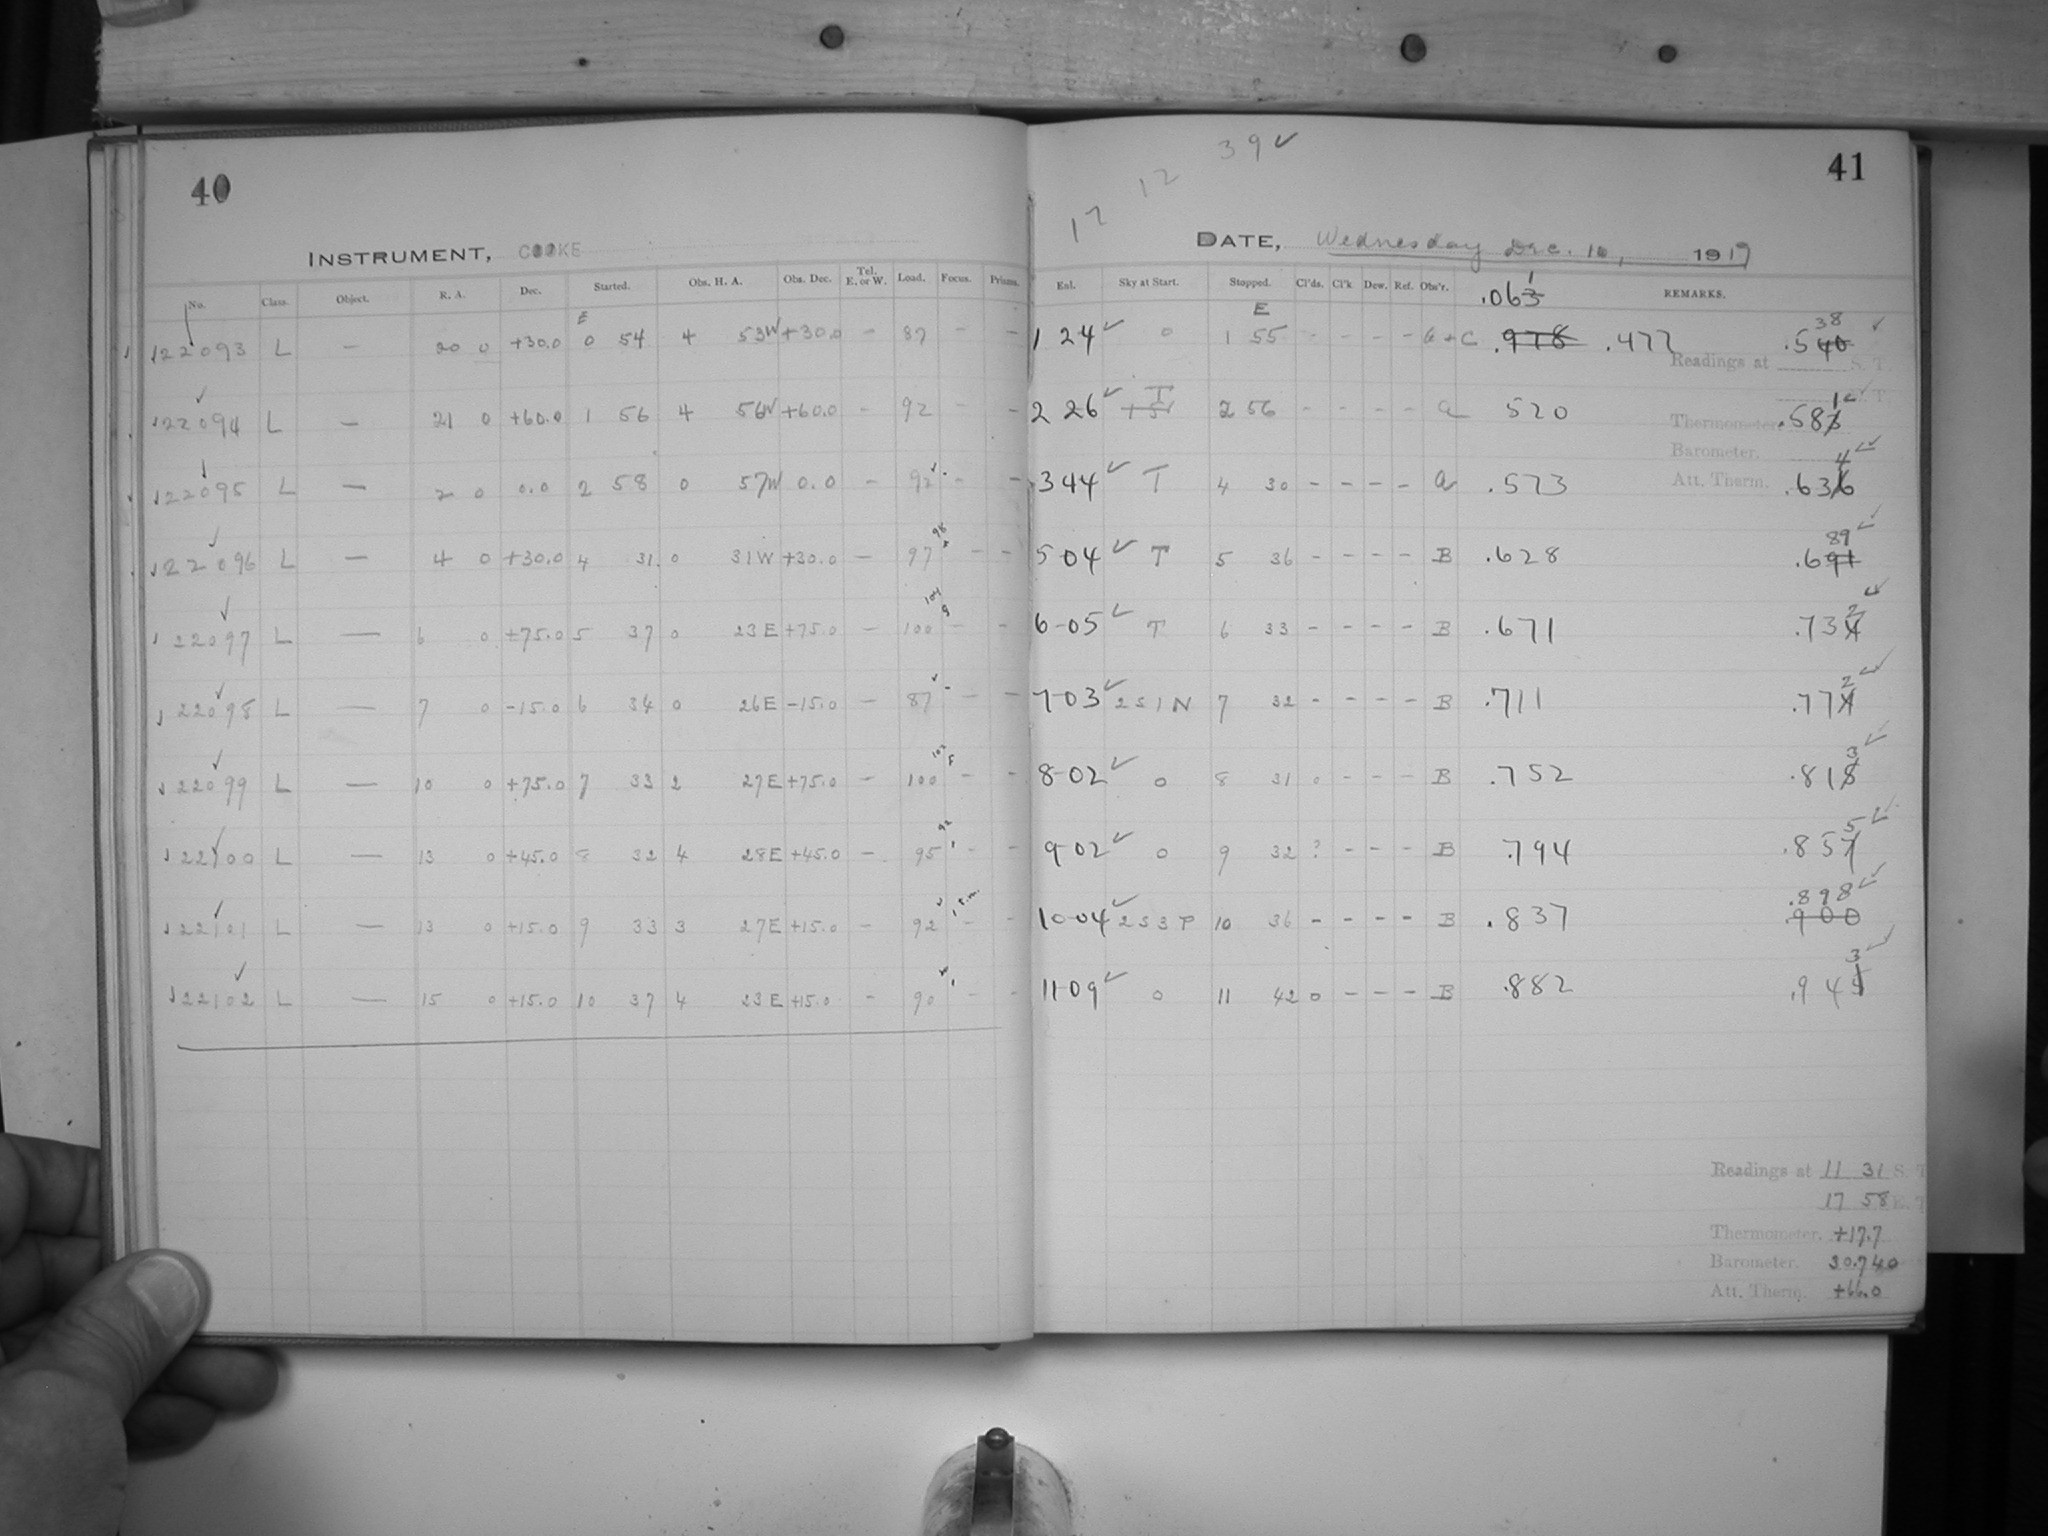 40
INSTRUMENT, COOKE
No. Class. Object. R. A. Dec. Started. Obs. H. A. Obs. Dec. Tel. E. or W. Load. Focus. Prisms.
E
122093 L — 20 0 +30.0 0 54 4 53W +30.0 — 87 — —
122094 L — 21 0 +60.0 1 56 4 56W +60.0 - 92 - —
122095 L — 2 0 0.0 2 58 0 57W 0.0 — 92 - —
122096 L — 4 0 +30.0 4 31 0 31W +30.0 — 97 — —
122097 L — 6 0 +75.0 5 37 0 23E +75.0 — 100 — —
122098 L — 7 0 -15.0 6 34 0 26E -15.0 — 87 — —
122099 L — 10 0 +75.0 7 33 2 27E +75.0 — 100 — -
122100 L — 13 0 +45.0 8 32 4 28E +45.0 — 95 - -
122101 L — 13 0 +15.0 9 33 3 27E +15.0 — 92 — -
122102 L — 15 0 +15.0 10 37 4 23E +15.0 - 90 - -
17 12 39 ✓
41
DATE, Wednesday Dec. 10, 1919
Exl. Sky at Start. Stopped. Cl'ds. Cl'k Dew. Ref. Obs'r. REMARKS.
1
.063
E
38
1 24 ✓ 0 1 55 - - - - .978 .477 .540 ✓
Readings at S. T.
E. T.
1 ✓
2 26 ✓ T 2 56 - - - - a 520 .583
Thermometer.
Barometer.
4 ✓
3 44 ✓ T 4 30 - - - - a .573 .636
Att. Therm.
89 ✓
5 04 ✓ T 5 36 - - - - B .628 .691
2 ✓
6-05 ✓ T 6 33 - - - - B .671 .734
2 ✓
7-03 ✓ 2S1N 7 32 - - - - B .711 .774
3 ✓
8-02 ✓ 0 8 31 0 - - - B .752 .815
5 ✓
9-02 ✓ 0 9 32 ? - - - B .794 .857
.898 ✓
10-04 ✓ 2S3P 10 36 - - - - B .837 .900
3 ✓
11-09 ✓ 0 11 42 0 - - - B .882 .945
Readings at 11 31 S. T
17 58 E. T
Thermometer. +17.7
Barometer. 30.740
Att. Therm. +66.0